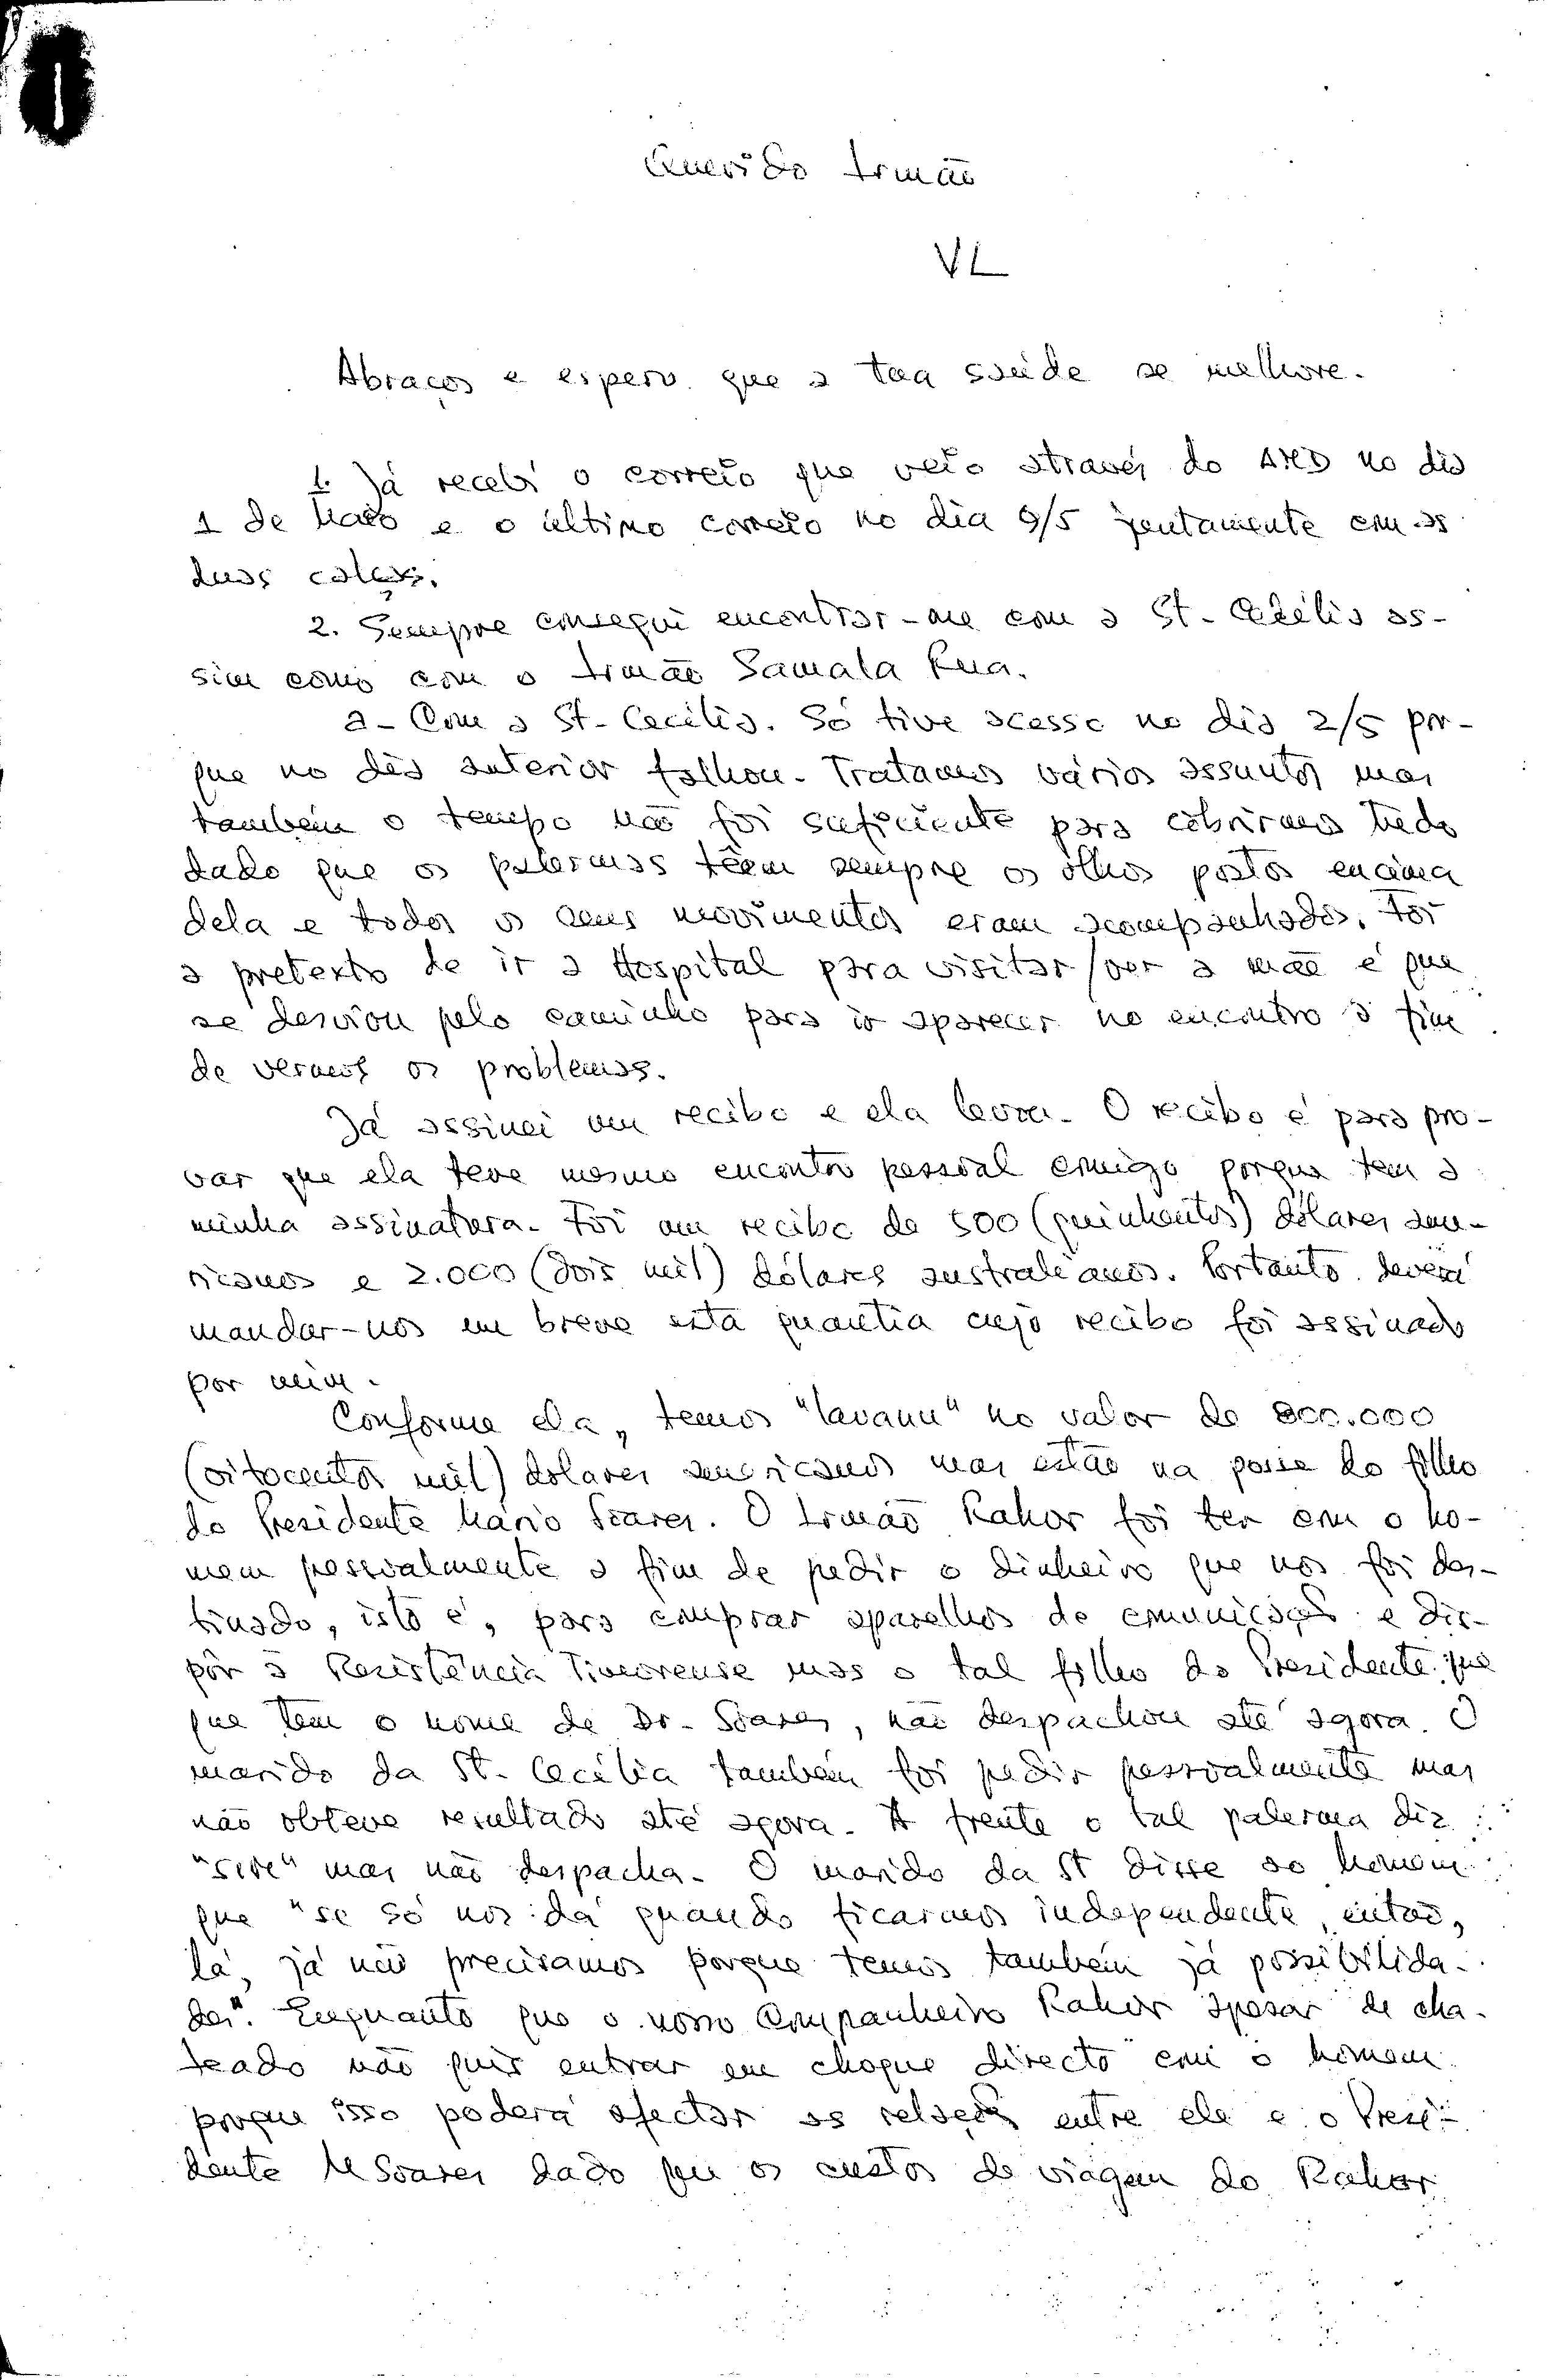 Querido Irmão
VL
Abraços e espero que a tua saúde se melhore.
1. Já recebi o correio que veio através do no dia
1 de Maio e o último correio no dia 9/5 juntamente com as
duas calças.
2. Sempre consegui encontrar-me com a St. Cecília as-
sim como com o Irmão Samala Rua.
a- Com a St. Cecília. Só tive acesso no dia 2/5 por-
que no dia anterior falhou. Tratamos vários assuntos mas
também o tempo não foi suficiente para cobrirmos tudo
dado que os palermas têem sempre os olhos postos encima
dela e todos os seus movimentos eram acompanhados. Foi
a pretexto de ir a Hospital para visitar/ver a mãe é que
se desviou pelo caminho para ir aparecer no encontro a fim
de vermos os problemas.
Já assinei um recibo e ela levou. O recibo é para pro-
var que ela teve mesmo encontro pessoal comigo porque tem a
minha assinatura. Foi um recibo de 500 (quinhentos) dólares ame-
ricanos e 2.000 (dois mil) dólares australianos. Portanto deverá
mandar-nos em breve esta quantia cujo recibo foi assinado
por mim.
Conforme ela, temos "lavann" no valor de 800.000
(oitocentos mil) dolares americanos mas estão na posse do filho
do Presidente Mário Soares. O Irmão Rahor foi ter com o ho-
mem pessoalmente a fim de pedir o dinheiro que nos foi des-
tinado, isto é, para comprar aparelhos de comunicação e dis-
pôr à Resistência Timorense mas o tal filho do Presidente que
que tem o nome de Dr. Soares, não despachou até agora. O
marido da St. Cecília também foi pedir pessoalmente mas
não obteve resultado até agora. À frente o tal palerma diz
"sim" mas não despacha. O marido da St disse ao homem
que "se só nos dá quando ficarmos independente, então,
lá, já não precisamos porque temos também já possibilida-
des". Enquanto que o nosso Companheiro Rahor apesar de cha-
teado não quis entrar em choque directo com o homem
porque isso poderá afectar as relações entre ele e o Presi-
dente M Soares dado que os custos de viagem do Rahor